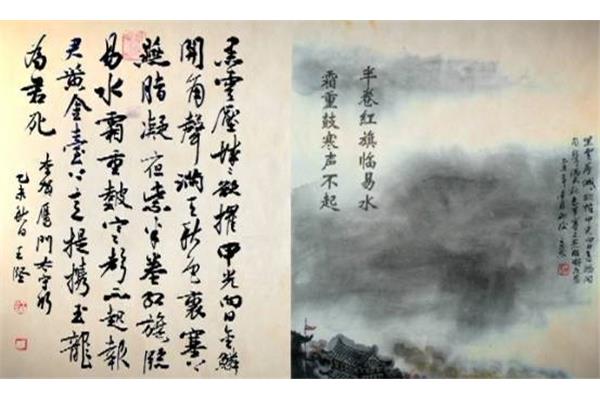 黑雲壓城〻欲摧甲光向日金鱗
開角聲滿天秋色裏塞上
燕脂凝夜紫半卷紅旗臨
易水霜重鼓寒声不起報
君黃金臺上意提携玉龍
為君死
李賀雁門太守行
乙未秋日王
半卷红旗临易水
霜重鼓寒声不起
黑雲壓城城欲摧甲光向日金鱗開